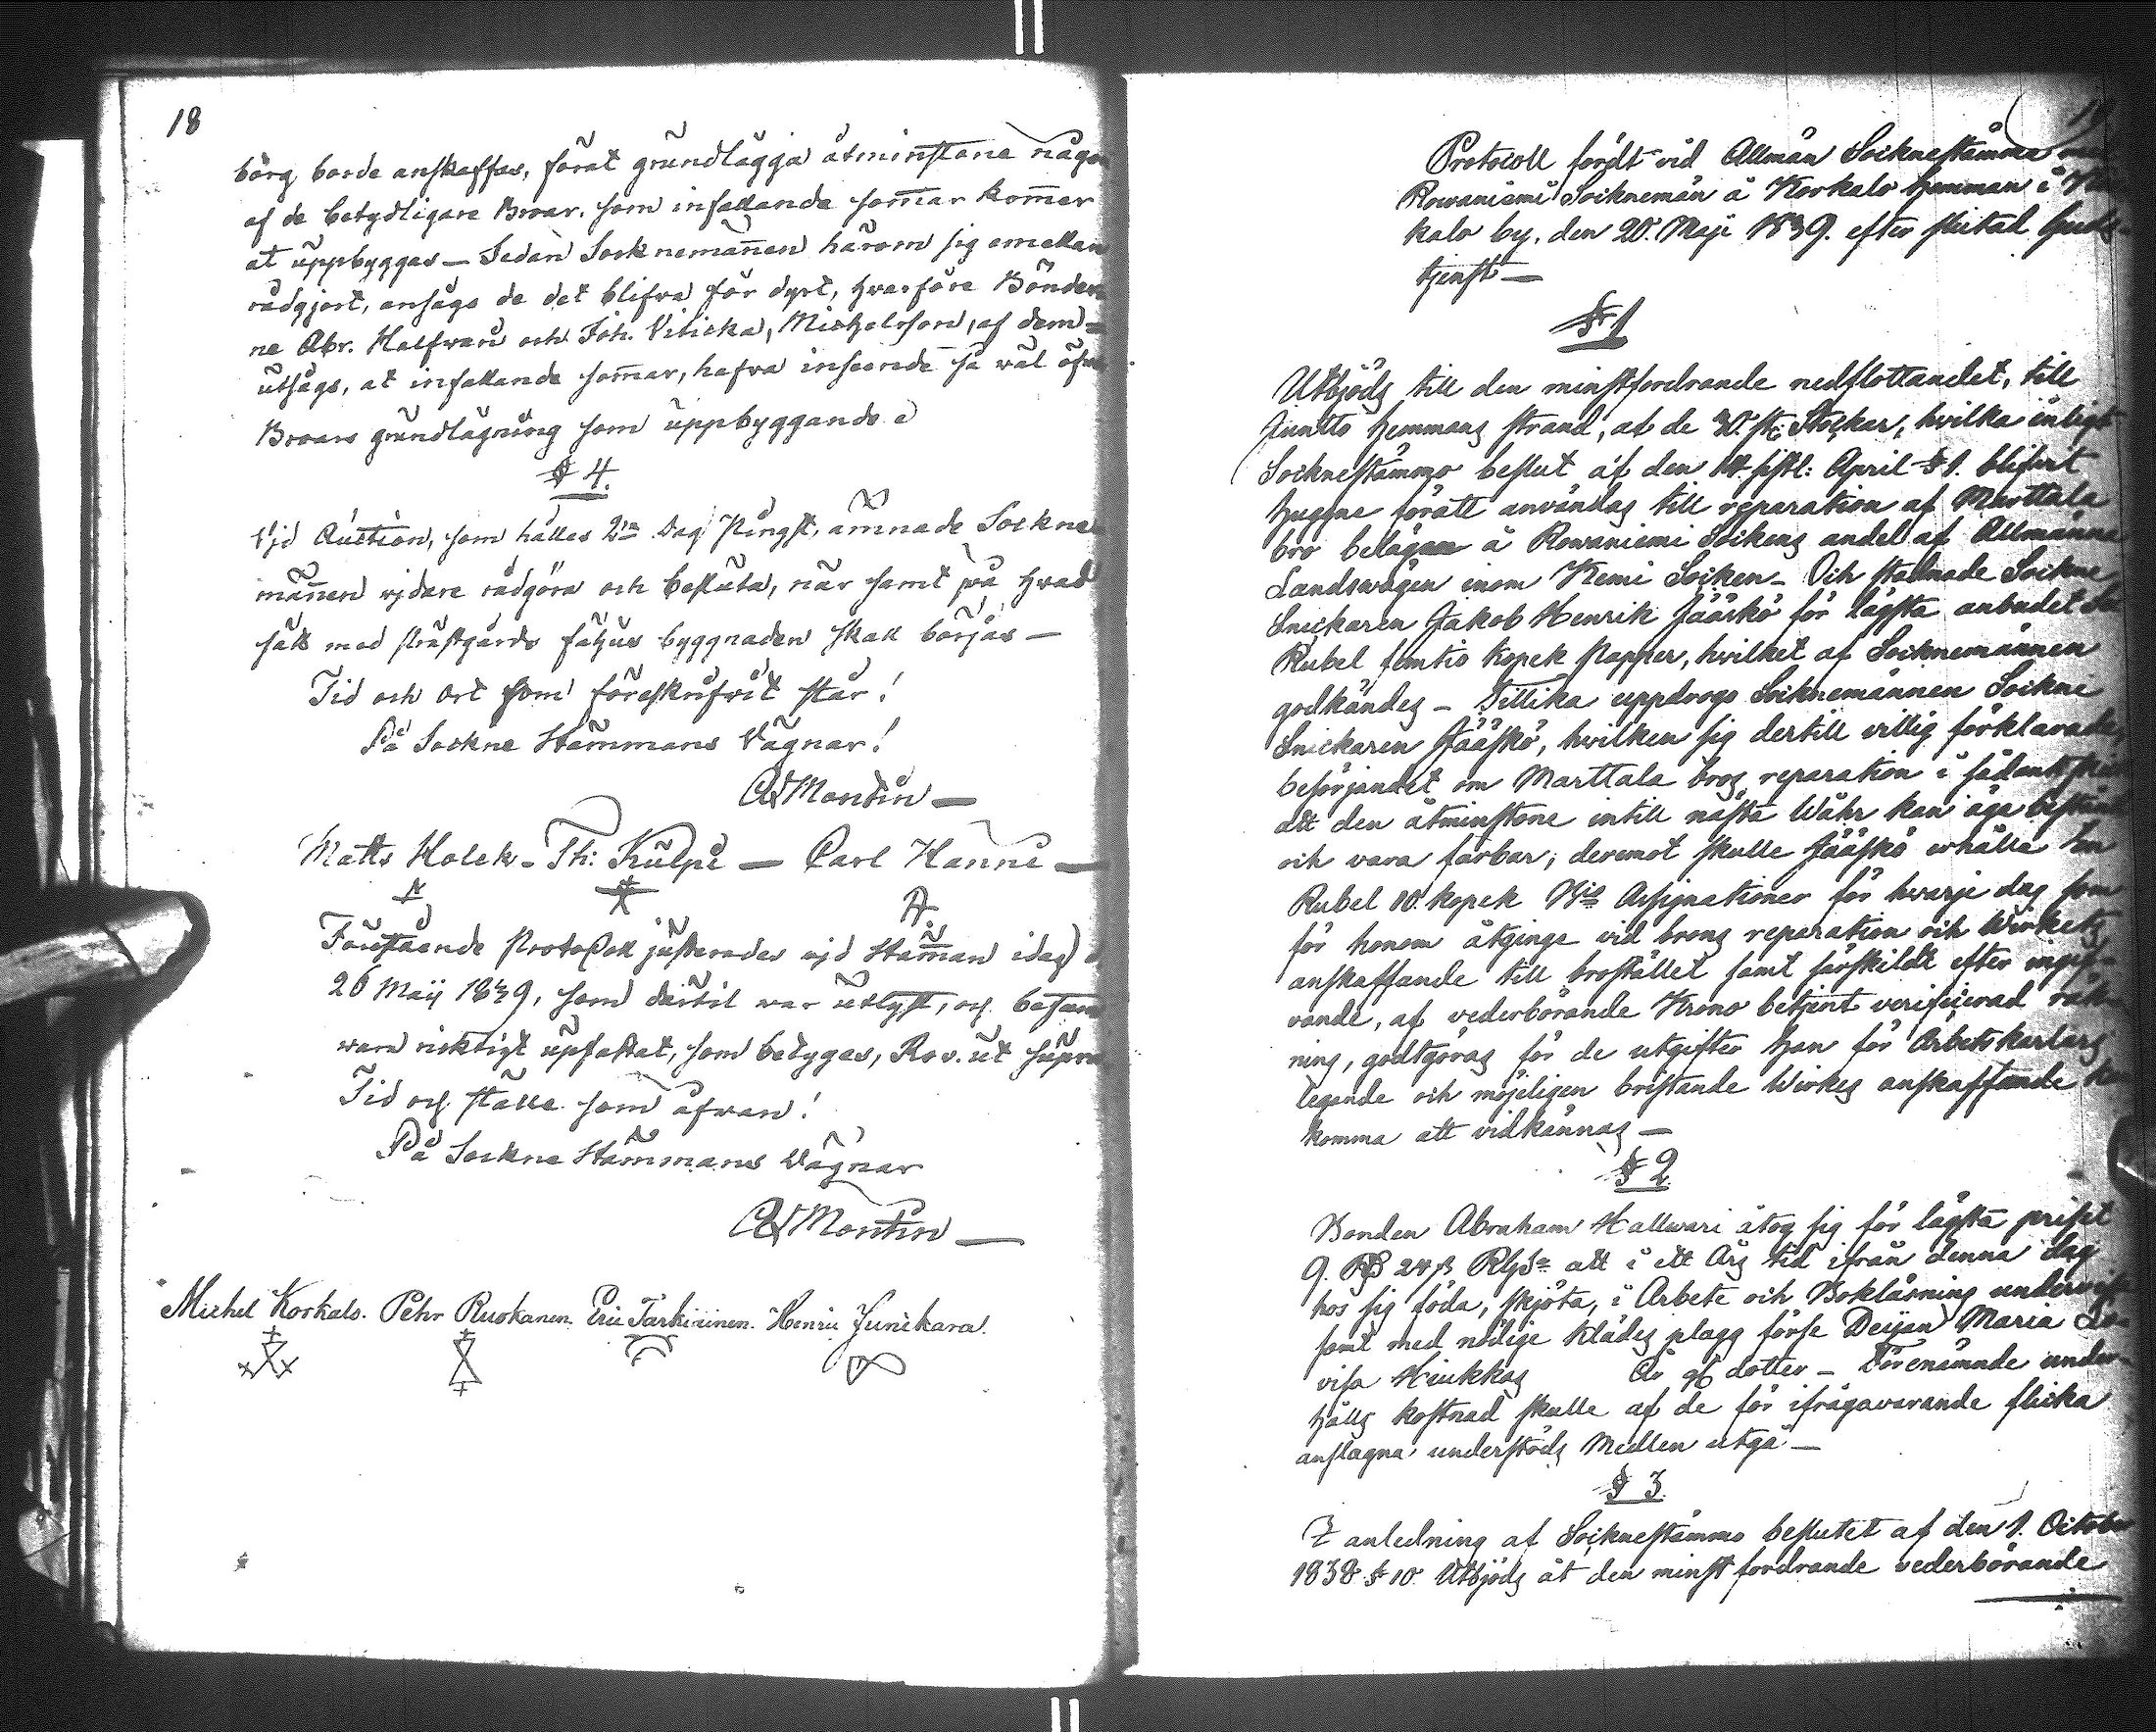 18
börg borde anskaffas, förat grundlägga åtminstone någon
af de betydligare Broar, som infallande som̄ar kom̄er
at uppbyggas — Sedan Socknemän̄en härom sig emellan
rådgjort, ansågs de det blifva för dyrt, hvarföre Bönder
ne Abr. Halfvari och Joh. Viticka, Michelsson, af dem
utsågs, at infallande som̄ar, hafva inseende så väl öfver
Broars grundlägning som uppbyggande
§ 4.
Vid Auction, som hålles 2dra Dag Pingst, ämnade Sockne
män̄en vidare rådgöra och besluta, när samt på hvad
sätt med Prästgårds fähus byggnaden skall börjas —
Tid och ort som föreskrifvit står!
På Sockne Stämmans Vägnar!
Ad Montin —
Matts Kolek - Th: Kulpi — Carl Hanni —
Förestående Protocoll justerades vid Stäm̄an idag d
26 Maij 1839, som dertil var utlyst, och befans
vara riktigt upfattat, som betygas, Rov. ut supra
Tid och ställe som ofvan!
På Sockne Stämmans Vägnar
Ad Montin —
Michel Korkalo. Pehr Ruokanen. Eric Tarkiainen. Henric Junikara.
19
Protocoll fördt vid Allmän Socknestämma med
Rowaniemi Socknemän å Korkalo Hemman i Kor
kalo by, den 20. Maji 1839. efter slutad Guds-
tjenst —
§ 1
Utbjöds till den minstfordrande nedflottandet, till
Juntto Hemmans strand, af de 30. st: Stockar, hvilka enligt
Socknestämmo beslut af den 14. sistl: April § 1. blifvit
huggne föratt användas till reparation af Marttala
bro belägen å Rowaniemi Sockens andel af Allmänna
Landsvägen inom Kemi Socken - Och stadnade Sockne
Snickaren Jakob Henrik Jääskö för lägsta anbudet
Rubel femtio kopek Papper, hvilket af Socknemännen
godkändes - Tillika uppdrogo Socknemännen Sockne
Snickaren Jääskö, hvilken sig dertill villig förklarade,
besörjandet om Marttala bros reparation i sådant skick
att den åtminstone intill nästa Wåhr kan äga bestånd
och vara farbar; deremot skulle Jääskö erhålla En
Rubel 10. kopek Bco Assignationer för hvarje dag som
för honom åtginge vid brons reparation och Wirkets
anskaffande till broställed samt särskildt efter ingif-
vande, af vederbörande Krono betjent verificerad räk
ning, godtgöras för de utgifter han för Arbetskarlars
legande och möjeligen bristande Wirkes anskaffande kan
komma att vidkännas —
§ 2
Bonden Abraham Hallwari åtog sig för lägsta priset
9. RD 24 ß RGds att i ett Års tid ifrån denna dag
hos sig föda, skjöta, i Arbete och Bokläsning undervisa
samt med nödige klädes plagg förse Dejan Maria Lo
visa Hiukkas Är qf dotter - Förenämnde under-
hålls kostnad skulle af de för ifrågavarande flicka
anslagna understöds Medlen utgå —
§ 3.
I anledning af Socknestämmo beslutet af den 1. October
1838 § 10. Utbjöds åt den minst fordrande vederbörande